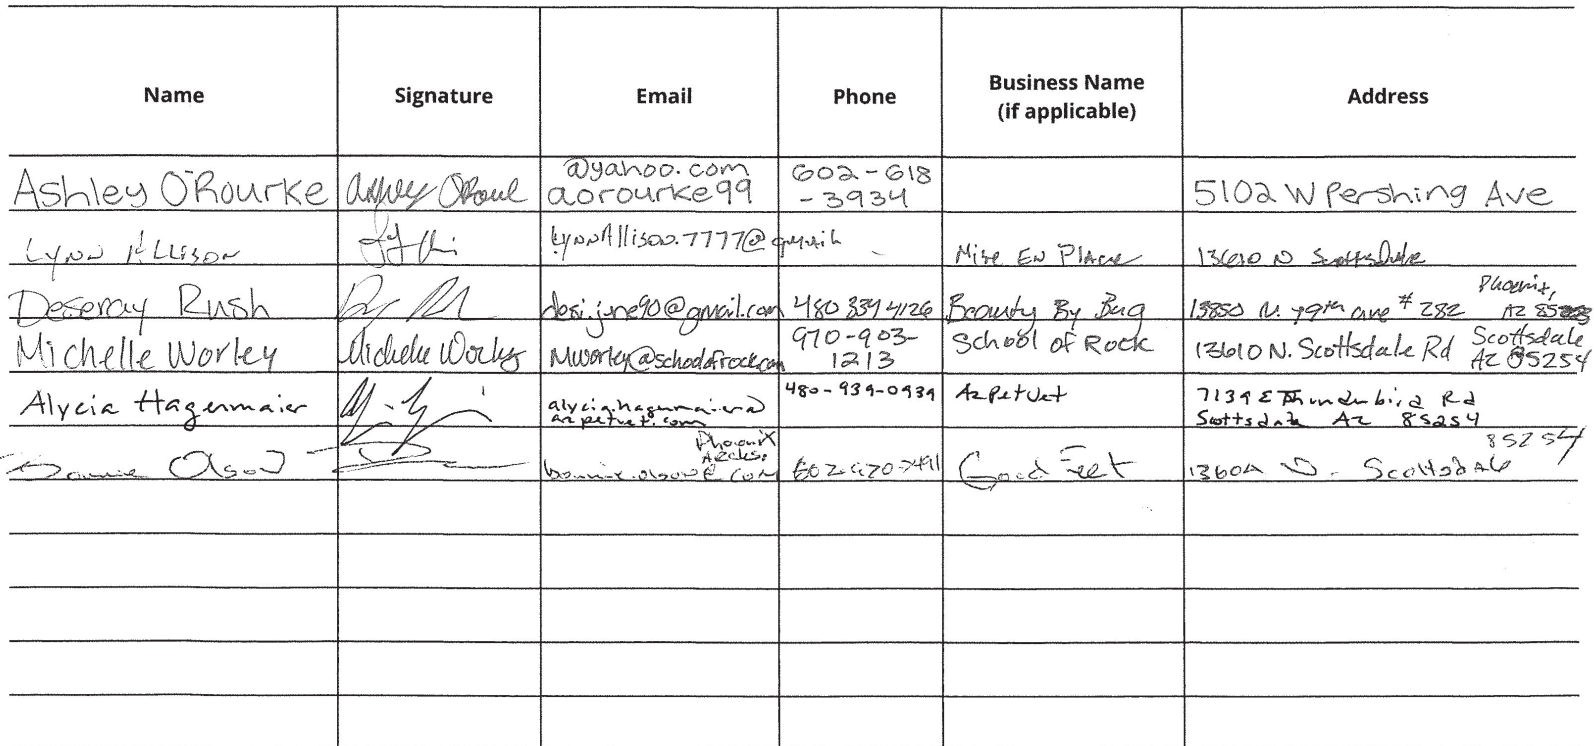 Name Signature Email Phone Business Name (if applicable) Address
Ashley O'Rourke @yahoo.com aorourke99 602-618-3934 5102 W Pershing Ave
Lynn Allison LynnAllison.7777@gmail Mise En Place 13610 N Scottsdale
Deseray Rush desi.june90@gmail.com 480 334 4126 Beauty By Bug 13850 N. 79th ave # 282 Phoenix, AZ
Michelle Worley Michelle Worley Mworley@schoolofrock.com 970-903-1213 School of Rock 13610 N. Scottsdale Rd Scottsdale AZ 85254
Alycia Hagermaier alycia.hagermaier@azpetvet.com 480-939-0939 AzPetVet 7139 E Thunderbird Rd Scottsdale Az 85254
Olson Good Feet N. Scottsdale 85254